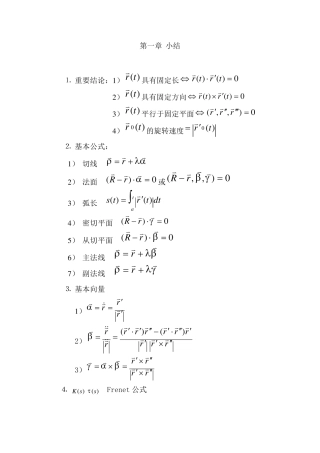 第一章 小结
1. 重要结论：1） r⃗(t) 具有固定长⇔ r⃗(t)·r⃗′(t) = 0
2） r⃗(t) 具有固定方向⇔ r⃗(t)×r⃗′(t) = 0
3） r⃗(t) 平行于固定平面⇔ (r⃗, r⃗′, r⃗″) = 0
4） r⃗⁰(t) 的旋转速度= |r⃗′⁰(t)|
2. 基本公式：
1） 切线 ρ⃗ = r⃗ + λα⃗
2） 法面 (R⃗ − r⃗)·α⃗ = 0 或 (R⃗ − r⃗, β⃗, γ⃗) = 0
3） 弧长 s(t) = ∫ₐᵗ |r⃗′(t)|dt
4） 密切平面 (R⃗ − r⃗)·γ⃗ = 0
5） 从切平面 (R⃗ − r⃗)·β⃗ = 0
6） 主法线 ρ⃗ = r⃗ + λβ⃗
7） 副法线 ρ⃗ = r⃗ + λγ⃗
3. 基本向量
1） α⃗ = ṙ⃗ = r⃗′/|r⃗′|
2） β⃗ = r̈⃗/|r̈⃗| = ((r⃗′·r⃗′)r⃗″ − (r⃗′·r⃗″)r⃗′)/(|r⃗′||r⃗′×r⃗″|)
3） γ⃗ = α⃗×β⃗ = (r⃗′×r⃗″)/|r⃗′×r⃗″|
4. K(s) τ(s) Frenet 公式